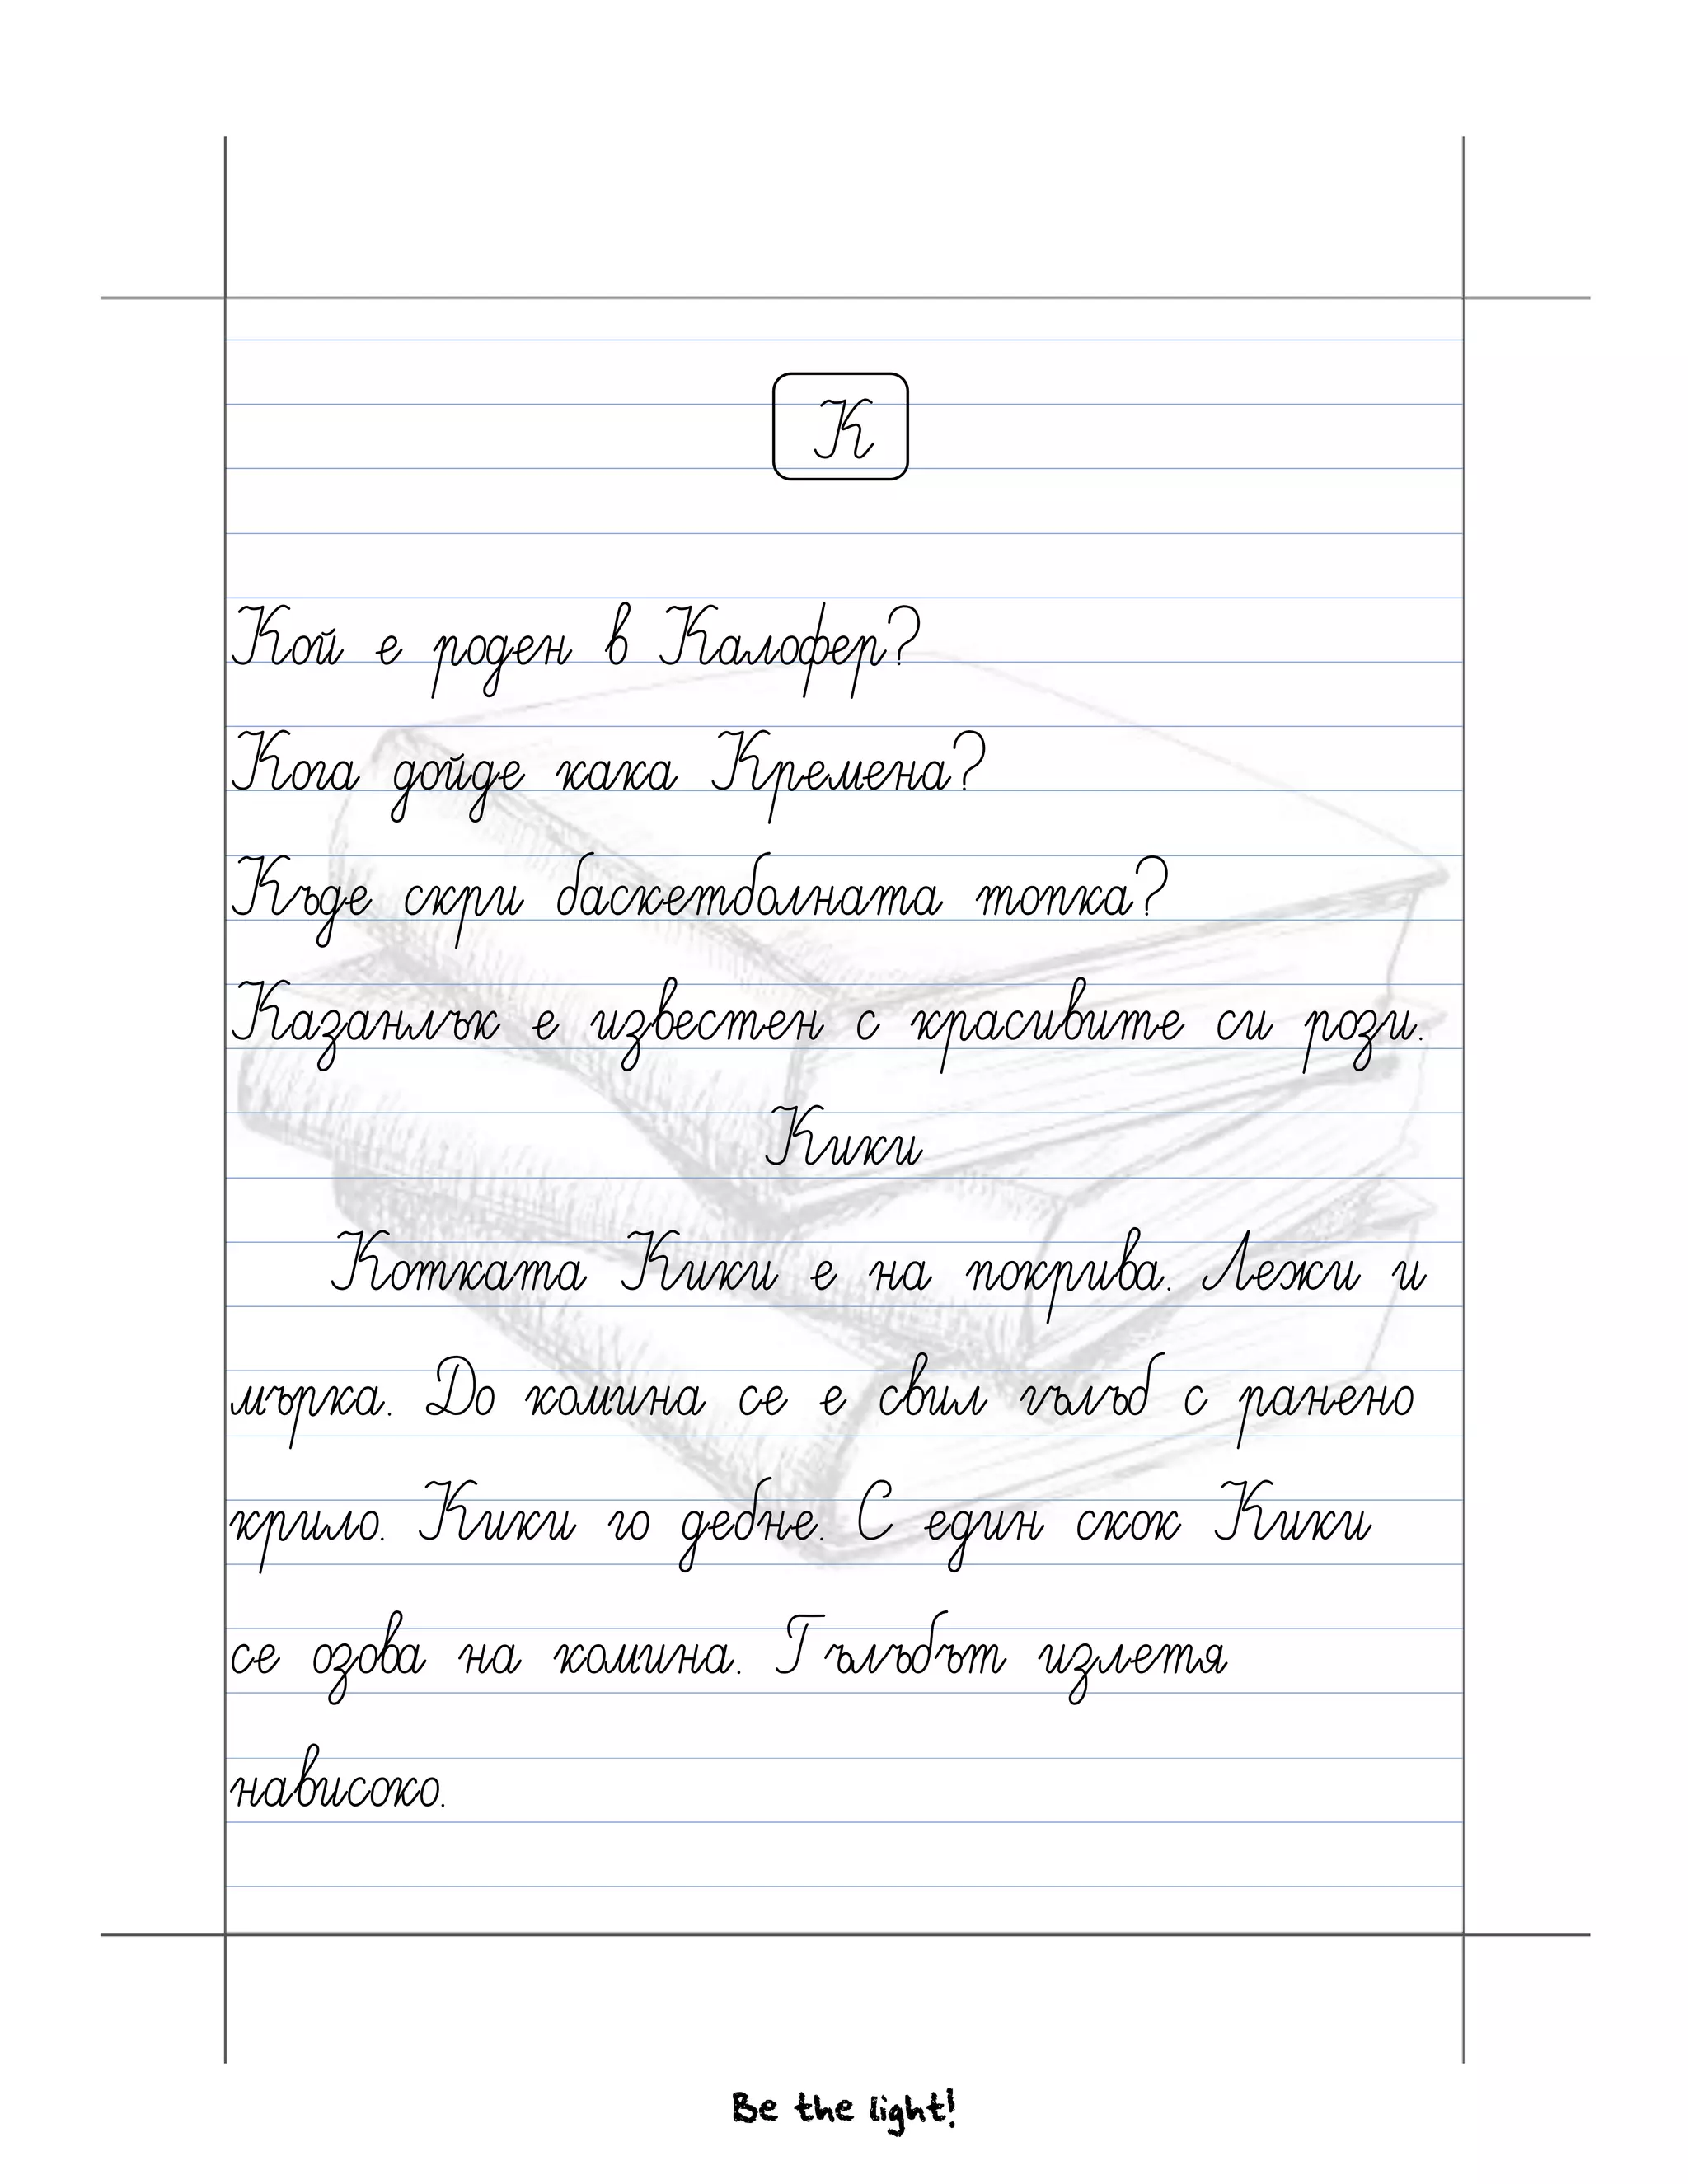 К
Кой е роден в Калофер?
Кога дойде кака Кремена?
Къде скри баскетболната топка?
Казанлък е известен с красивите си рози.
Кики
Котката Кики е на покрива. Лежи и
мърка. До комина се е свил гълъб с ранено
крило. Кики го дебне. С един скок Кики
се озова на комина. Гълъбът излетя
нависоко.
Be the light!